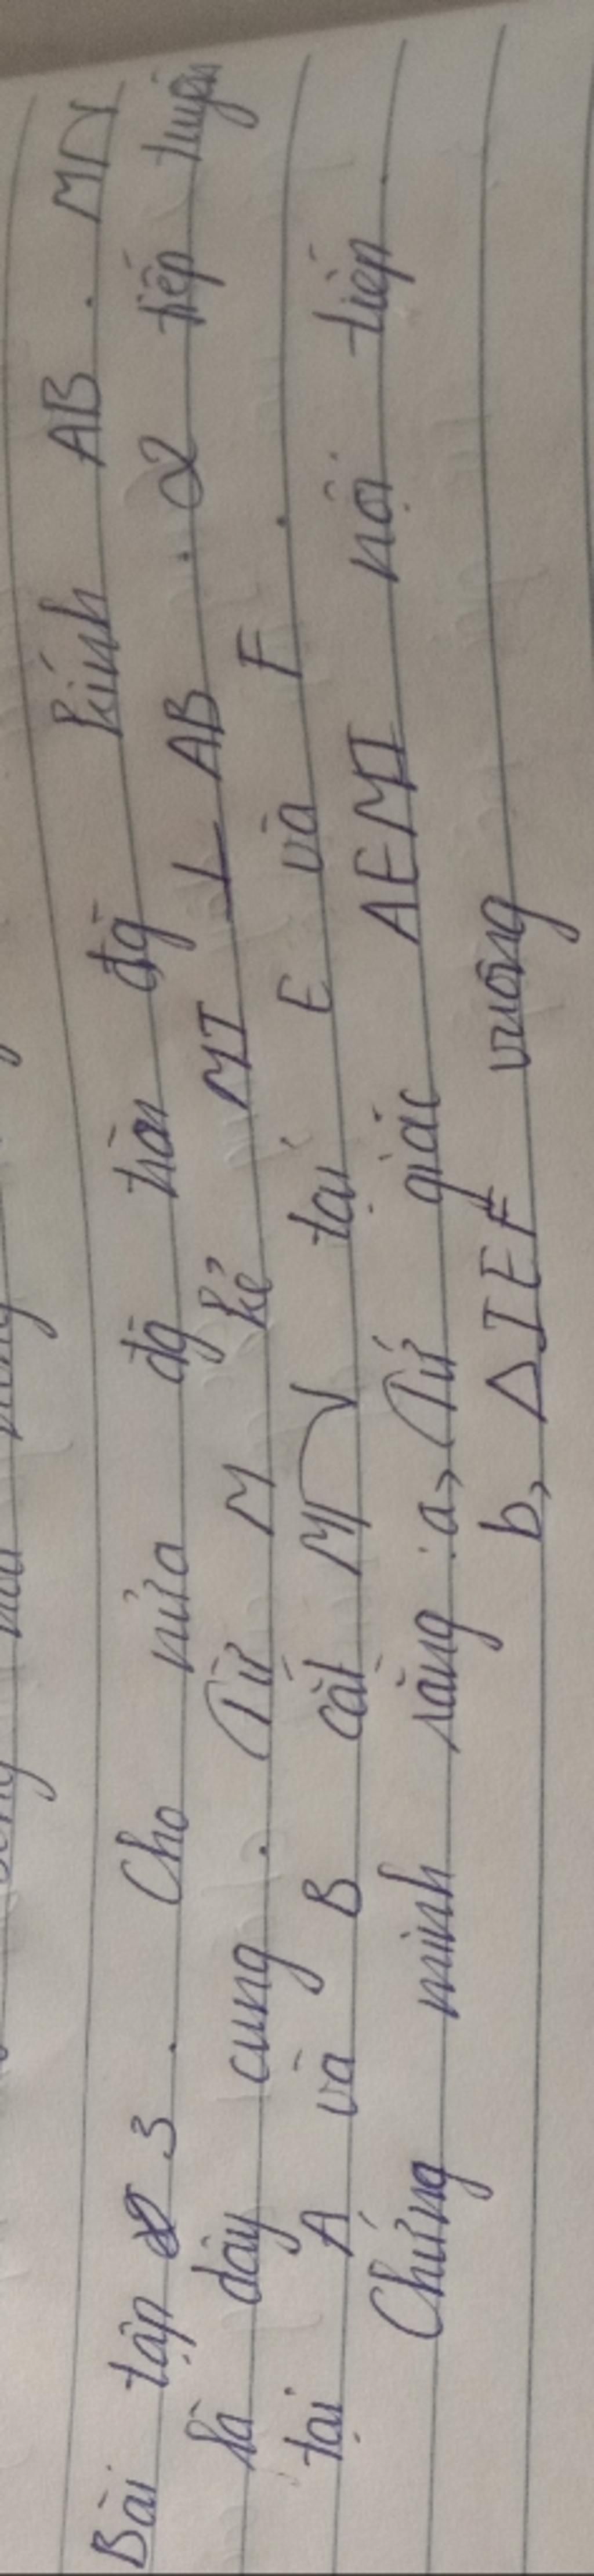 Bài tập 3. Cho nửa đg tròn đg kính AB. MN
là dây cung. Từ M kẻ MI ⊥ AB. 2 tiếp tuyến
tại A và B cắt MN tại E và F.
Chứng minh rằng: a, Tứ giác AEMI nội tiếp.
b, ΔIEF vuông